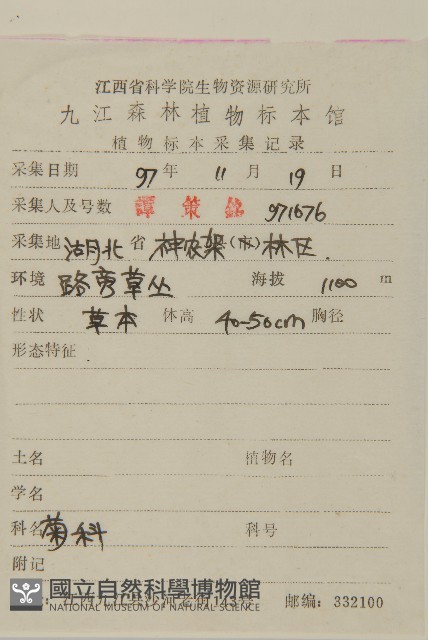 江西省科学院生物资源研究所
九江森林植物标本馆
植物标本采集记录
采集日期 97 年 11 月 19 日
采集人及号数 譚策銘 971676
采集地 湖北 省 神农架 (市) 林区.
环境 路旁草丛 海拔 1100 m
性状 草本 体高 40-50cm 胸径
形态特征
土名 植物名
学名
科名 菊科 科号
附记
國立自然科學博物館
NATIONAL MUSEUM OF NATURAL SCIENCE
邮编: 332100